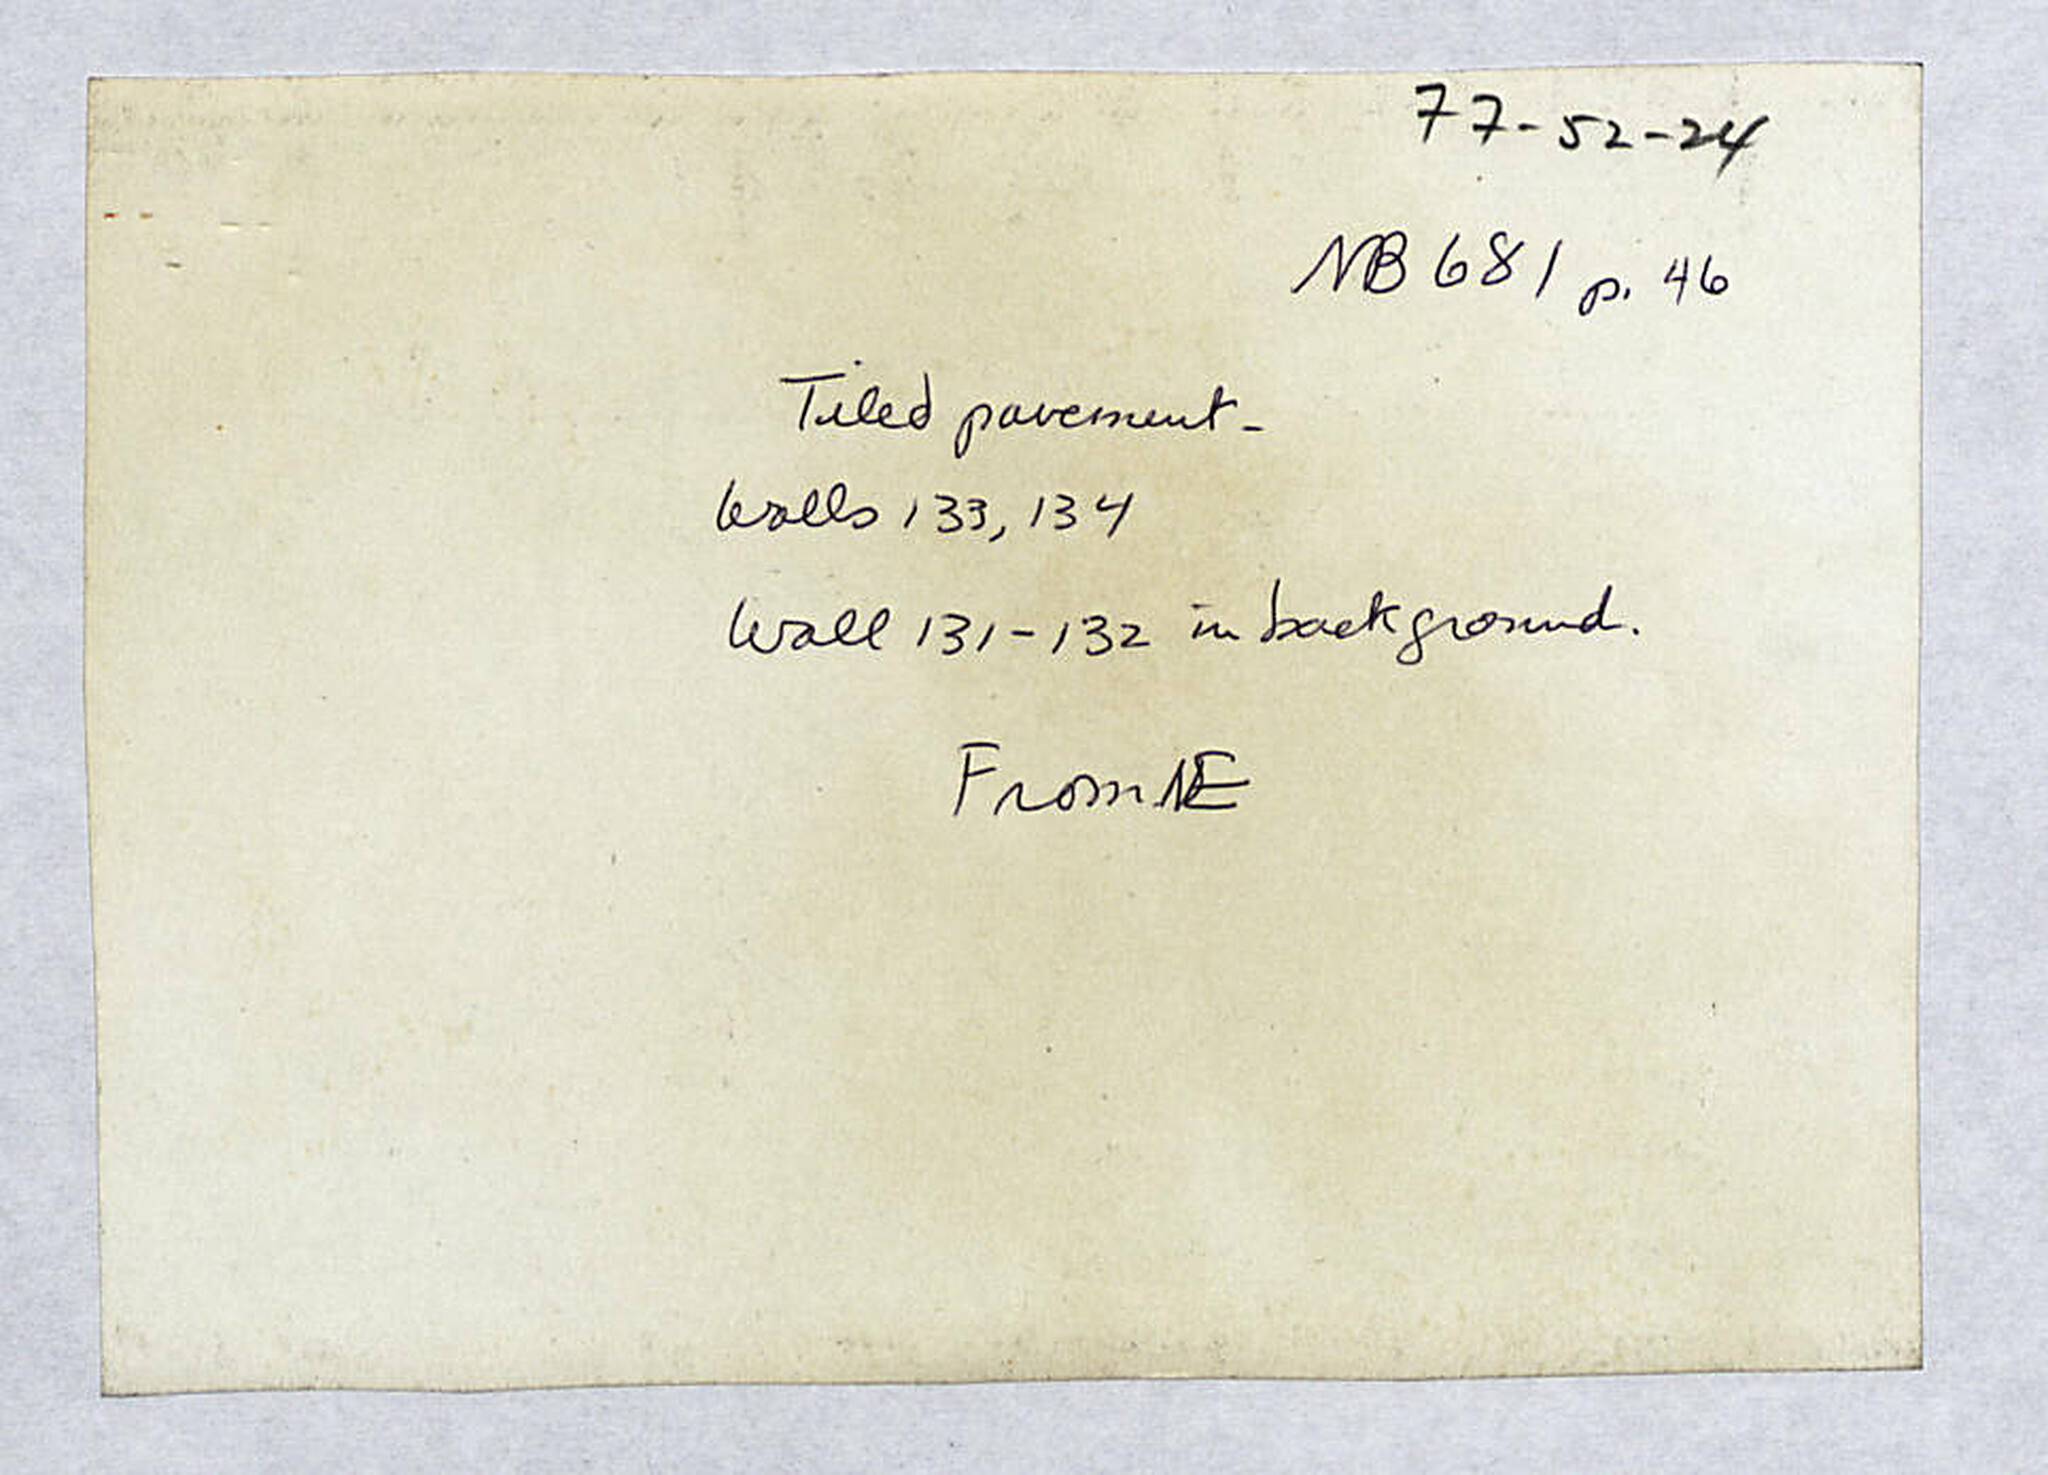 77-52-24
NB 681 p. 46
Tiled pavement-
Walls 133, 134
Wall 131-132 in background.
From NE